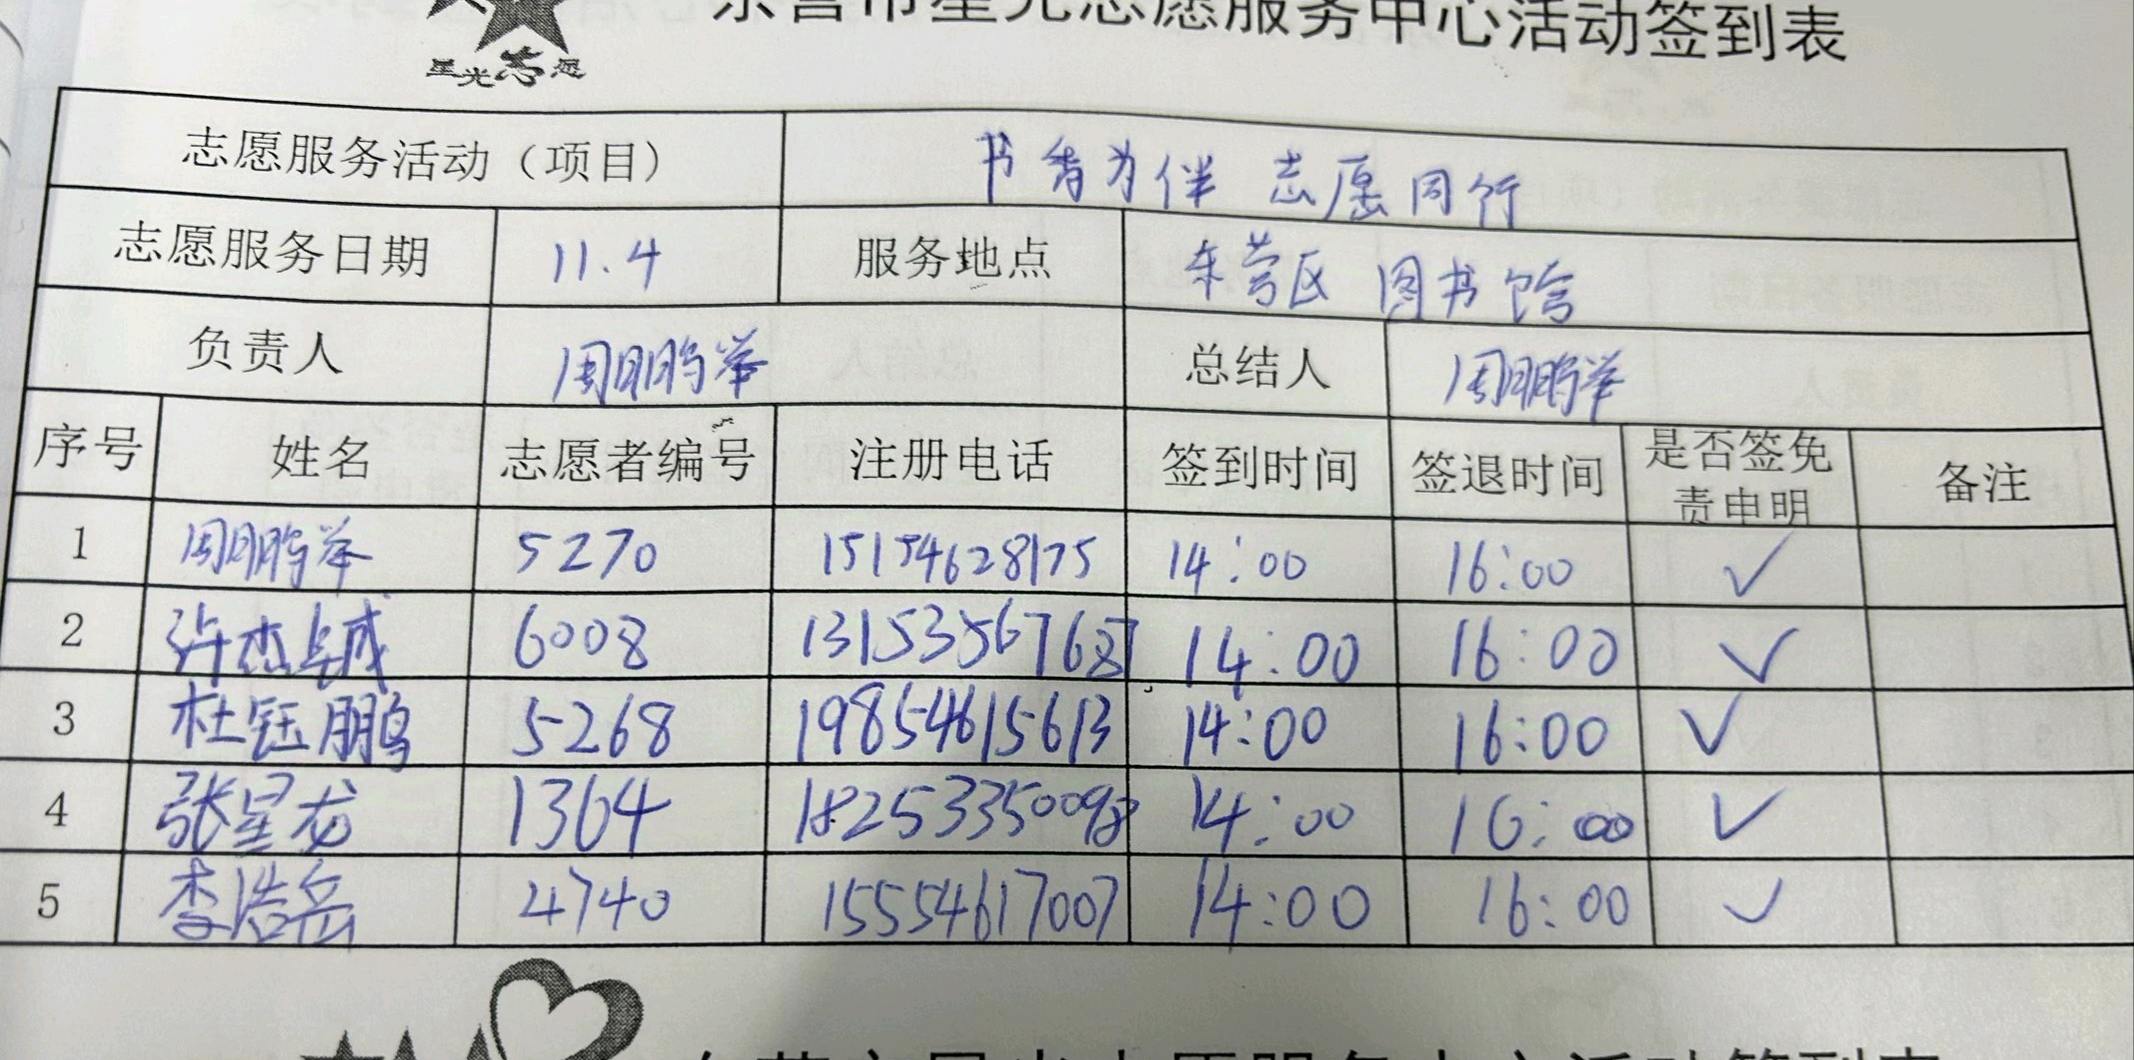 东营市星光志愿服务中心活动签到表
星光志愿
志愿服务活动（项目） 书香为伴 志愿同行
志愿服务日期 11.4 服务地点 东营区 图书馆
负责人 周鹏举 总结人 周鹏举
序号 姓名 志愿者编号 注册电话 签到时间 签退时间 是否签免责申明 备注
1 周鹏举 5270 15154628175 14:00 16:00 ✓
2 许杰毓 6008 14:00 16:00 ✓
3 杜钰鹏 5268 19854615613 14:00 16:00 ✓
4 张星龙 1364 18253350098 14:00 16:00 ✓
5 李浩岳 4740 15554617007 14:00 16:00 ✓
东营市星光志愿服务中心活动签到表